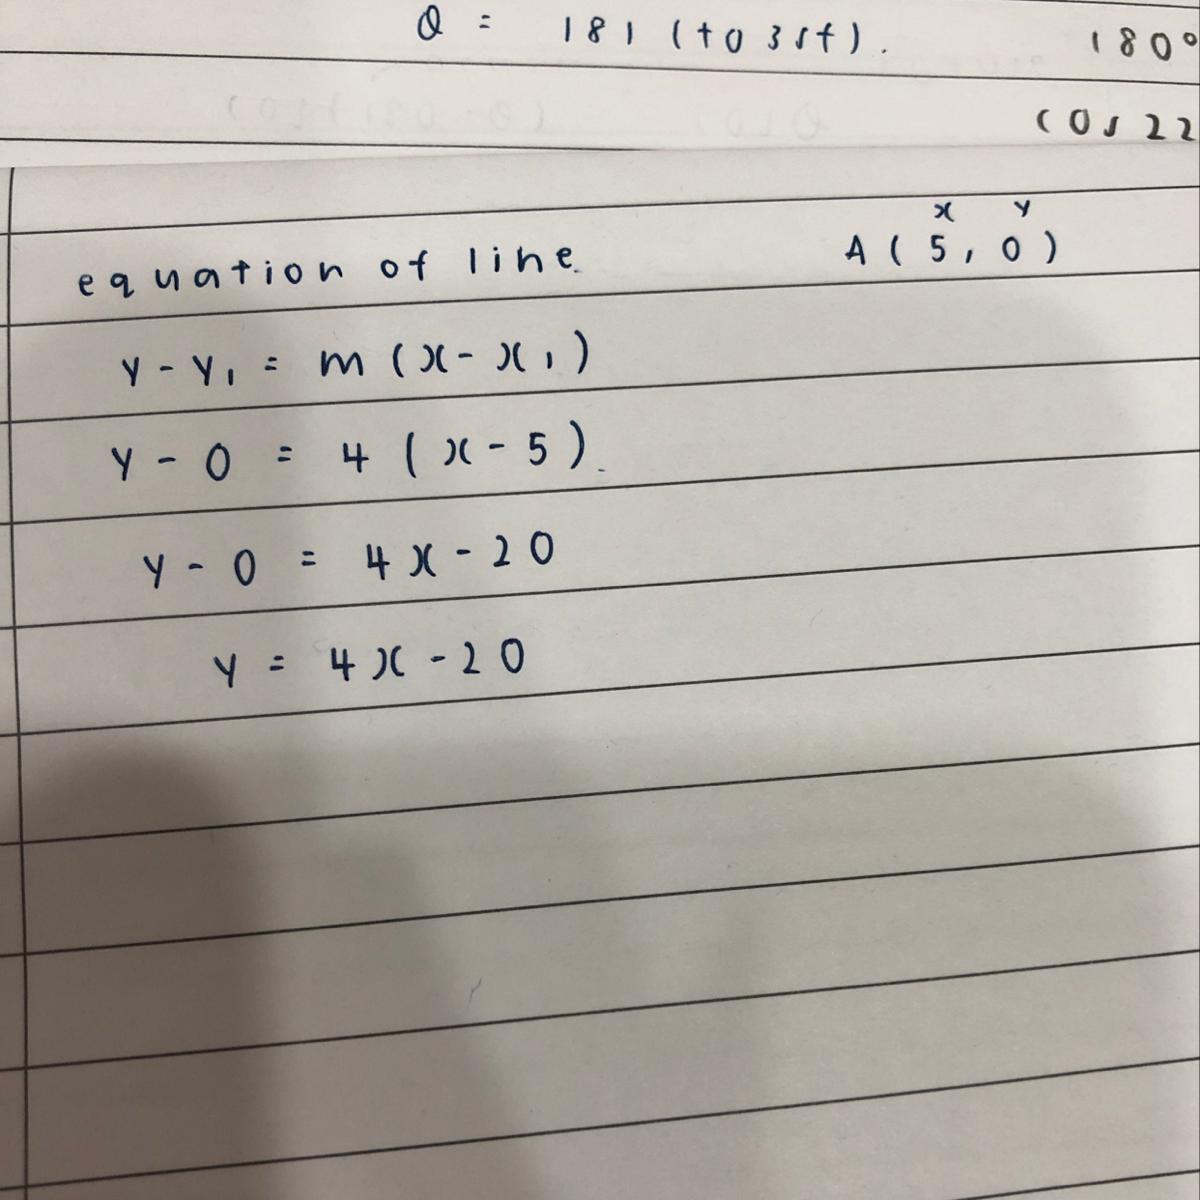 Q = 181 (to 3sf). 180°
cos 22
equation of line. A ( 5 , 0 )
x y
y - y₁ = m ( x - x₁ )
y - 0 = 4 ( x - 5 ).
y - 0 = 4x - 20
y = 4x - 20